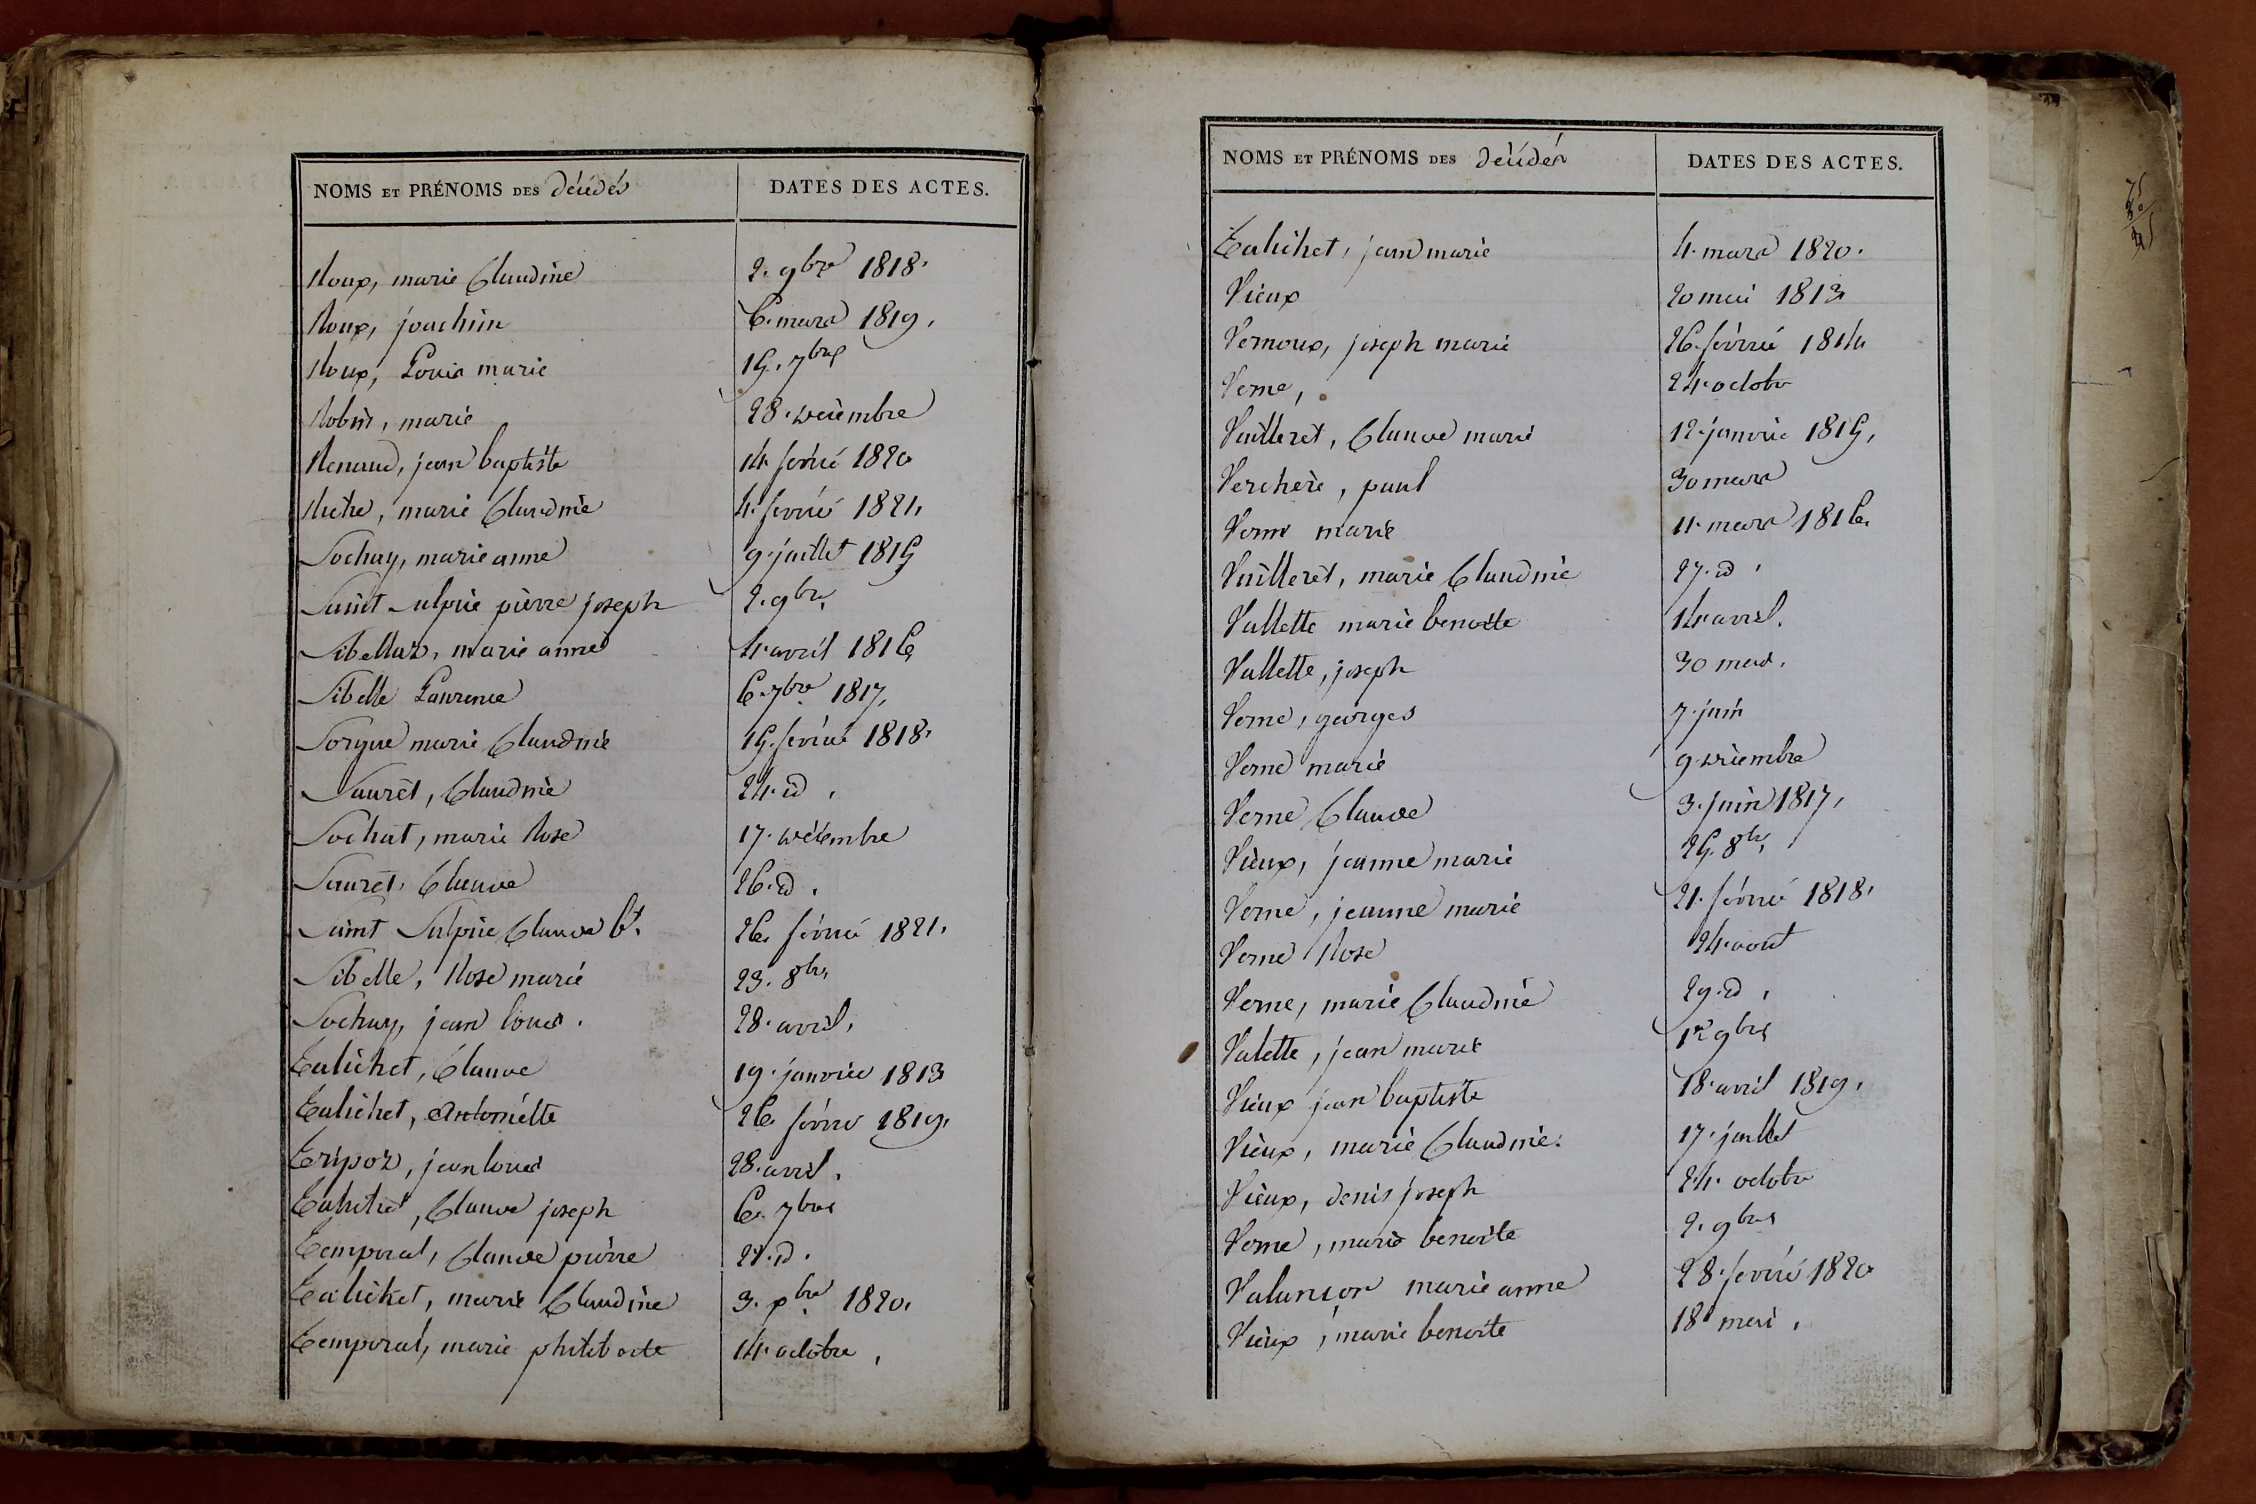 NOMS ET PRÉNOMS DES décédés DATES DES ACTES.
Roux, marie Claudine 2. 9bre 1818.
Roux, joachim 6. mars 1819.
Roux, Louis marie 15. 7bre
Robin, marie 28. décembre
Renaud, jean baptiste 14 février 1820
marie Claudine 4. février 1821.
Sochay, marie anne 9. juillet 1815
Saint Sulpice pierre joseph 2. 9bre
Sibellas, marie anne 4. avril 1816
Sibelle Laurence 6. 7bre 1817.
Sorgue marie Claudine 15. février 1818.
Sauret, Claudine 24. id.
Sochat, marie Rose 17. décembre
Sauret, Claude 26. id.
Saint Sulpice Claude bt. 26 février 1821.
Sibelle, Rose marie 23. 8bre
Sochay, jean louis. 28. avril.
Talichet, Claude 19. janvier 1813
Talichet, Antoinette 26 février 1819.
Tripoz, jean louis 28. avril.
Talichet, Claude joseph 6. 7bre
Temporal, Claude pierre 21. id.
Talichet, marie Claudine 3. Xbre 1820.
Temporal, marie philiberte 14. octobre.
NOMS ET PRÉNOMS DES décédés DATES DES ACTES.
Talichet, jean marie 4. mars 1820.
Vieux 20 mai 1813
Vernoux, joseph marie 26. février 1814
Verne, 24. octobre
Vuilleret, Claude marie 12. janvier 1815.
Verchère, paul 30 mars
Verne marie 11. mars 1816.
Vuilleret, marie Claudine 27. id.
Vallette marie benoite 14 avril.
Vallette, joseph 30 mai.
Verne, georges 7. juin
Verne marie 9 décembre
Verne Claude 3. juin 1817.
Vieux, jeanne marie 25. 8bre
Verne, jeanne marie 21. février 1818.
Verne Rose 24. aout
Verne, marie Claudine 29. id.
Valette, jean marie 1er 9bre
Vieux jean baptiste 18. avril 1819.
Vieux, marie Claudine. 17. juillet
Vieux, denis joseph 24. octobre
Verne, marie benoite 2. 9bre
Valançon marie anne 28. février 1820
Vieux, marie benoite 18 mai.